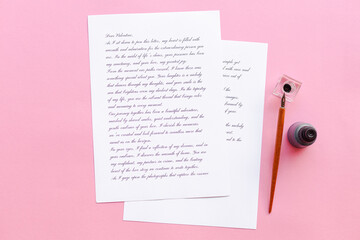 Dear Valentine,
As I sit down to pen this letter, my heart is filled with
warmth and admiration for the extraordinary person you
are. In the midst of life's chaos, your presence has been
my sanctuary, and your love, my greatest joy.
From the moment our paths crossed, I knew there was
something special about you. Your laughter is a melody
that dances through my thoughts, and your smile is the
sun that brightens even my darkest days. In the tapestry
of my life, you are the vibrant thread that brings color
and meaning to every moment.
Our journey together has been a beautiful adventure,
marked by shared smiles, quiet understandings, and the
gentle cadence of your love. I cherish the memories
we've created and look forward to countless more that
await us on the horizon.
In your eyes, I find a reflection of my dreams, and in
your embrace, I discover the warmth of home. You are
my confidant, my partner in crime, and the beating
heart of the love story we continue to write together.
As I gaze upon the photographs that capture the essence
out of
the
by
of
the melody
out is the